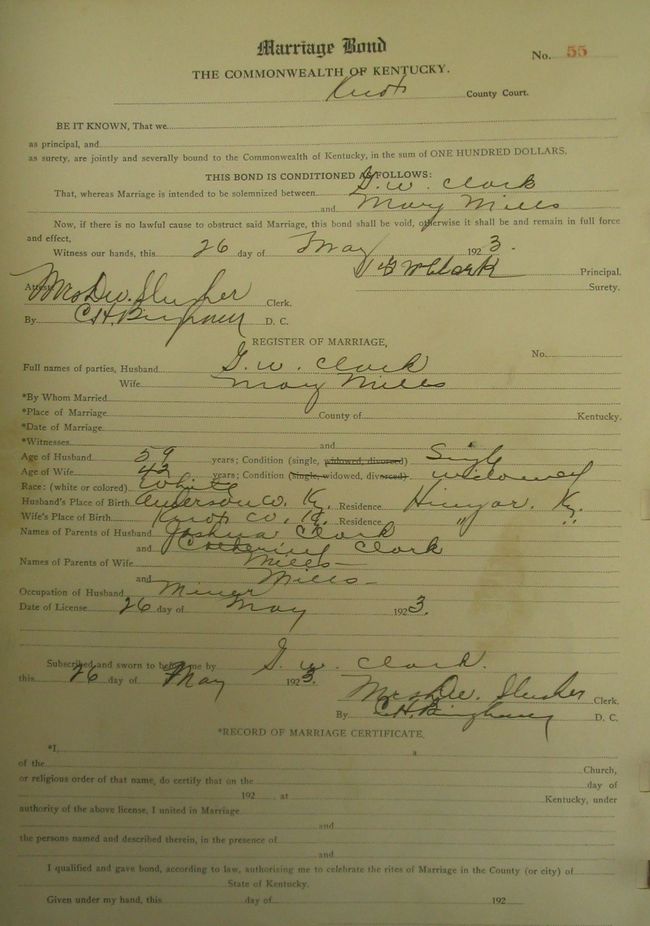 Marriage Bond
No. 55
THE COMMONWEALTH OF KENTUCKY.
Knot County Court.
BE IT KNOWN, That we
as principal, and
as surety, are jointly and severally bound to the Commonwealth of Kentucky, in the sum of ONE HUNDRED DOLLARS.
THIS BOND IS CONDITIONED AS FOLLOWS:
That, whereas Marriage is intended to be solemnized between G. W. Clark
and Mary Mills
Now, if there is no lawful cause to obstruct said Marriage, this bond shall be void, otherwise it shall be and remain in full force
and effect,
Witness our hands, this 26 day of May 1923.
G W Clark Principal.
Attest: Mrs D. W. Slusher Clerk. Surety.
By C. H. Bingham D. C.
REGISTER OF MARRIAGE,
No.
Full names of parties, Husband G. W. Clark
Wife Mary Mills
*By Whom Married
*Place of Marriage County of Kentucky.
*Date of Marriage
*Witnesses and
Age of Husband 59 years; Condition (single, widowed, divorced) Single
Age of Wife 42 years; Condition (single, widowed, divorced) widowed
Race: (white or colored) White
Husband's Place of Birth Anderson Co. Ky. Residence Hinyar. Ky.
Wife's Place of Birth Knot Co. Ky. Residence " "
Names of Parents of Husband Joshua Clark
and Catherine Clark
Names of Parents of Wife Mills
and Mills
Occupation of Husband Miner
Date of License 26 day of May 1923.
Subscribed and sworn to before me by G. W. Clark.
this 26 day of May 1923.
Mrs D. W. Slusher Clerk.
By C. H. Bingham D. C.
*RECORD OF MARRIAGE CERTIFICATE.
*I, a
of the Church,
or religious order of that name, do certify that on the day of
192 , at Kentucky, under
authority of the above license, I united in Marriage
and
the persons named and described therein, in the presence of
and
I qualified and gave bond, according to law, authorizing me to celebrate the rites of Marriage in the County (or city) of
State of Kentucky.
Given under my hand, this day of 192